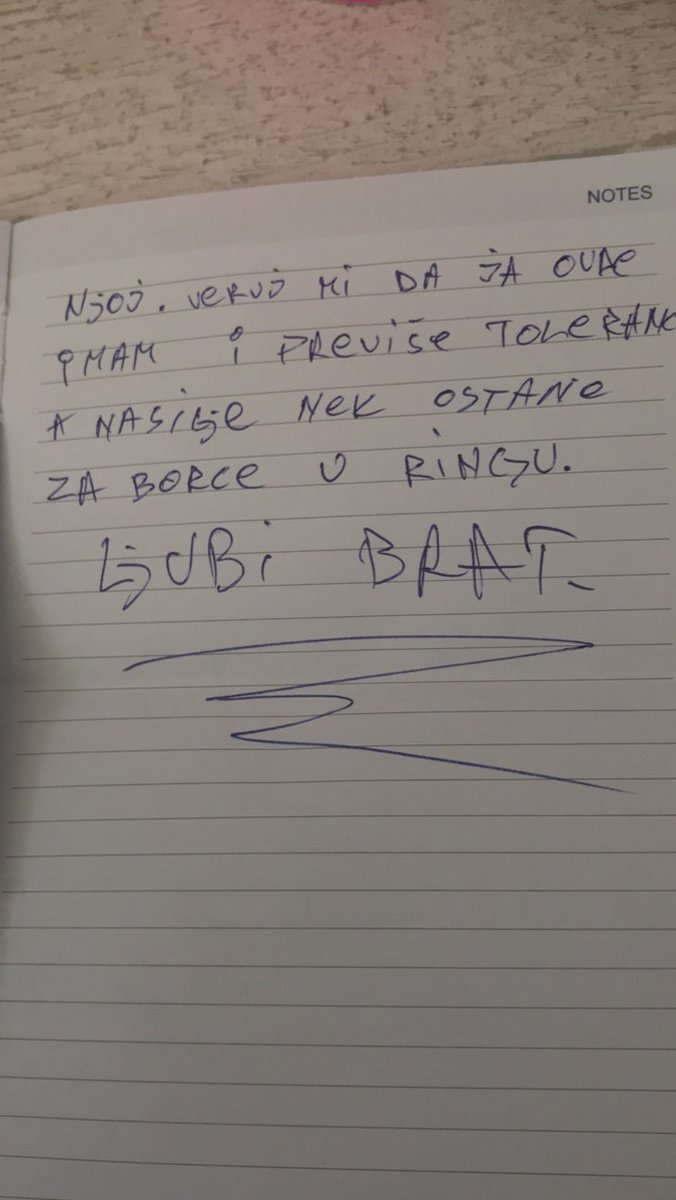 NOTES
Njoj. veruj mi DA JA OVDe
imam i previše TOLERANC
A NASilje NeK OSTANe
ZA BORCe U RiNGU.
LjUBi BRAT.